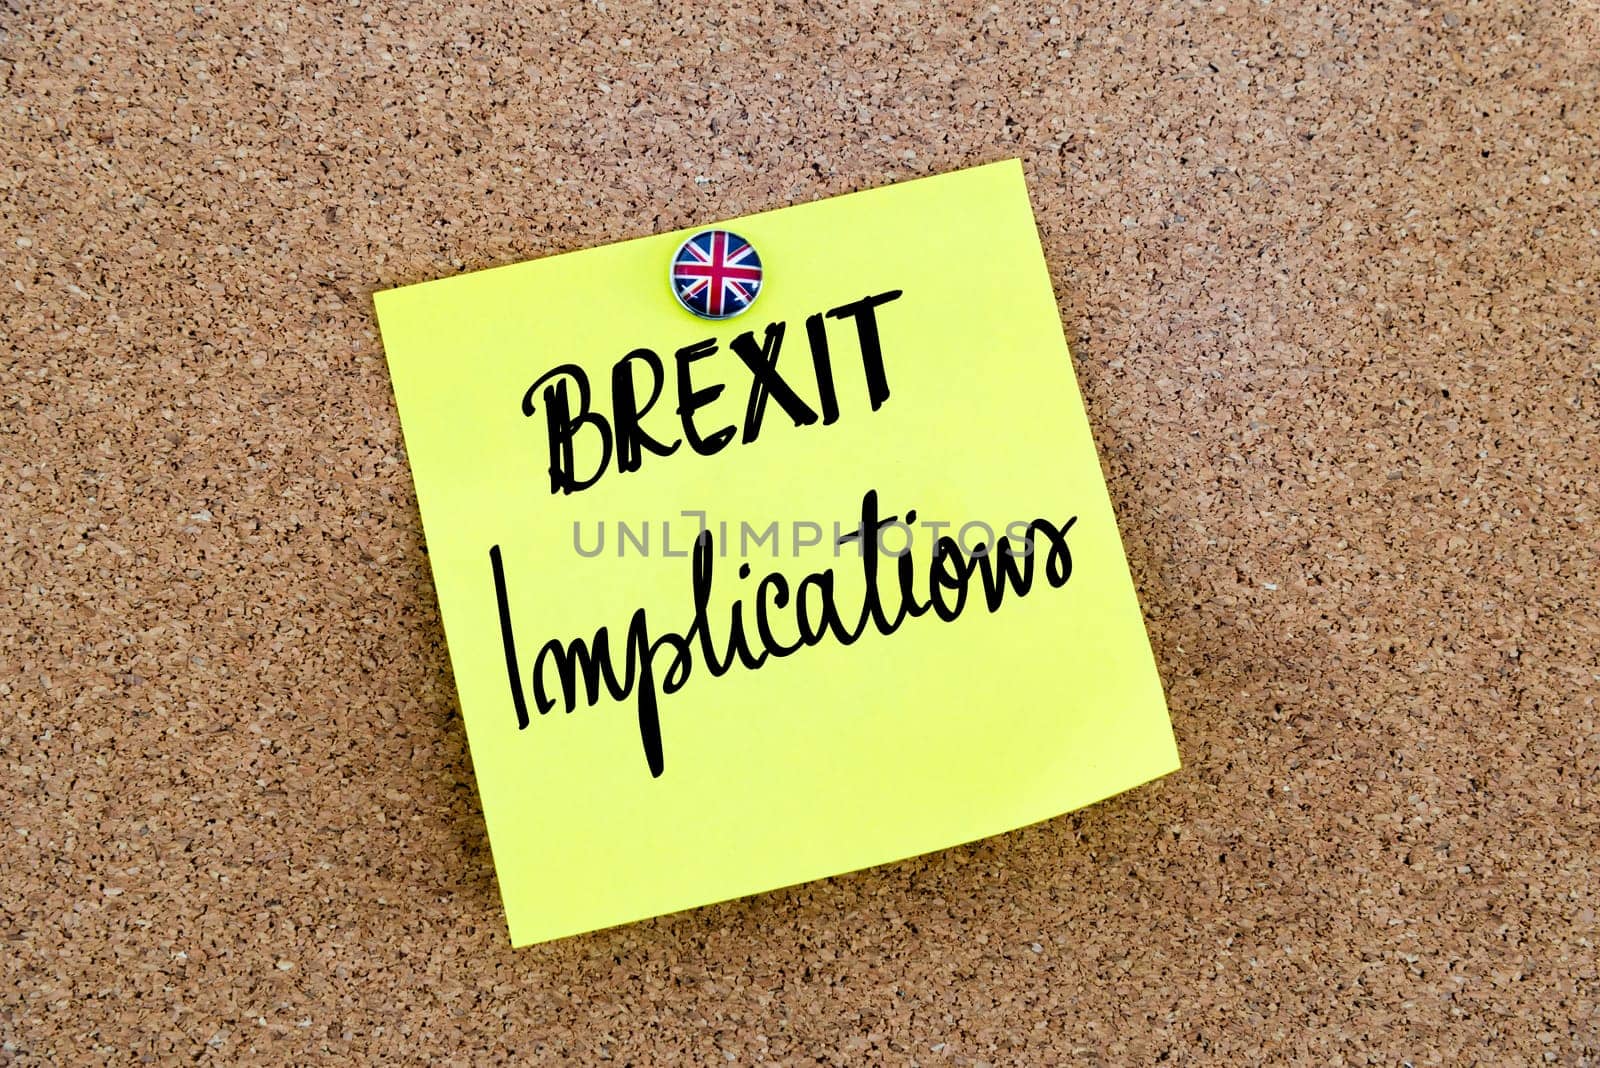 BREXIT
UNLIMPHOTOS
Implications